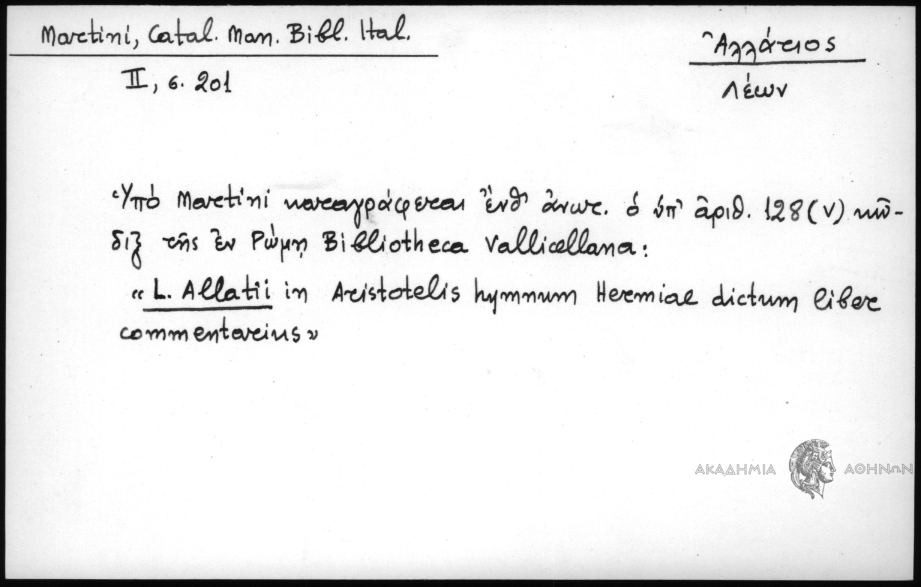 Martini, Catal. Man. Bibl. Ital.
II, σ. 201
Ἀλλάτιος
Λέων
Ὑπό Martini καταγράφεται ἔνθ' ἀνωτ. ὁ ὑπ' ἀριθ. 128 (V) κῶ-
διξ τῆς ἐν Ρώμῃ Bibliotheca Vallicellana:
« L. Allatii in Aristotelis hymnum Hermiae dictum liber
commentarius»
ΑΚΑΔΗΜΙΑ ΑΘΗΝΩΝ